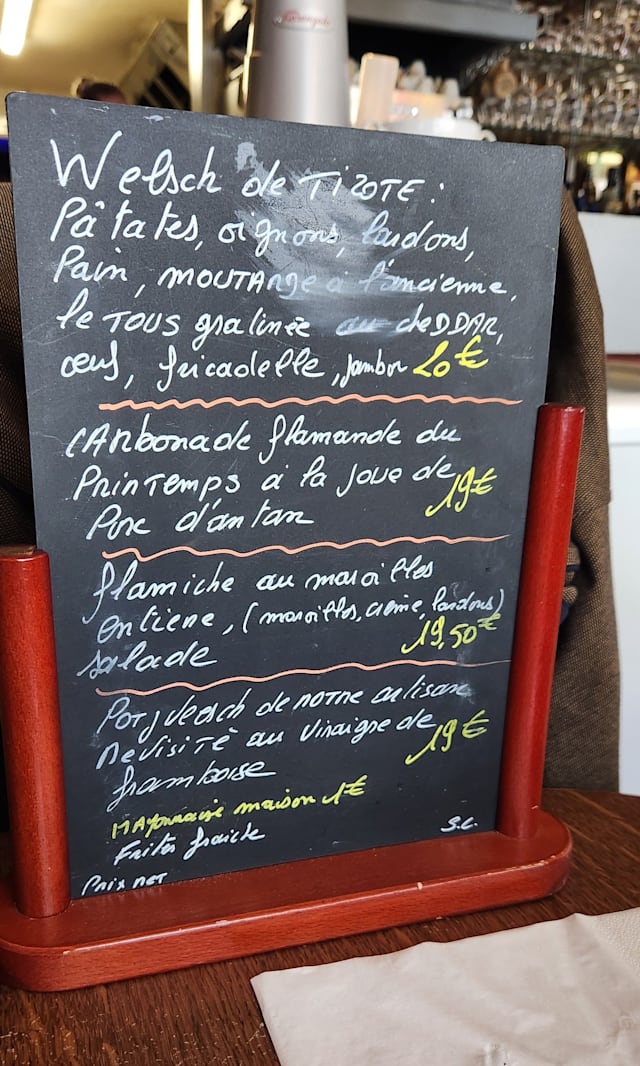 Welsch de TIZOTE :
Pâtates, oignons, lardons,
Pain, MOUTARDE à l'ancienne,
le TOUS gratinée au cheDDAR,
œuf, fricadelle, jambon 20€
CArbonade flamande du
PrinTemps à la joue de
Porc d'antan 19€
flamiche au maroilles
entiene, (maroilles, crème, lardons)
salade 19,50€
Potjvlesch de notre artisan
Revisité au vinaigre de
framboise 19€
MAyonnaise maison 1€
Frites fraiche
S.C.
Prix net